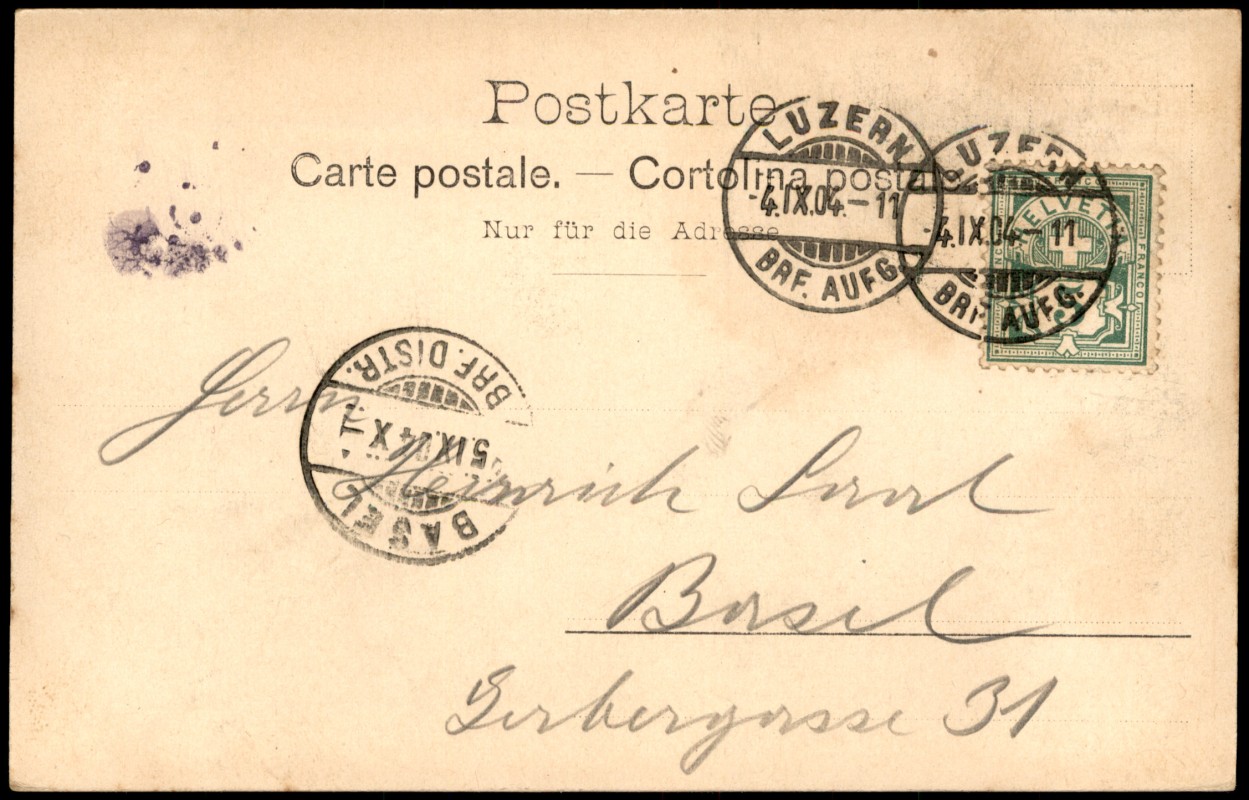 Postkarte
Carte postale. — Cortolina postal
Nur für die Adresse
LUZERN
-4.IX.04.-11
BRF. AUFG.
LUZERN
-4.IX.04.-11
BRF. AUFG.
HELVETIA
FRANCO
BRF. DISTR.
5.IX.04 X-
BASEL
Herrn
Heinrich Saal
Basel
Gerbergasse 31